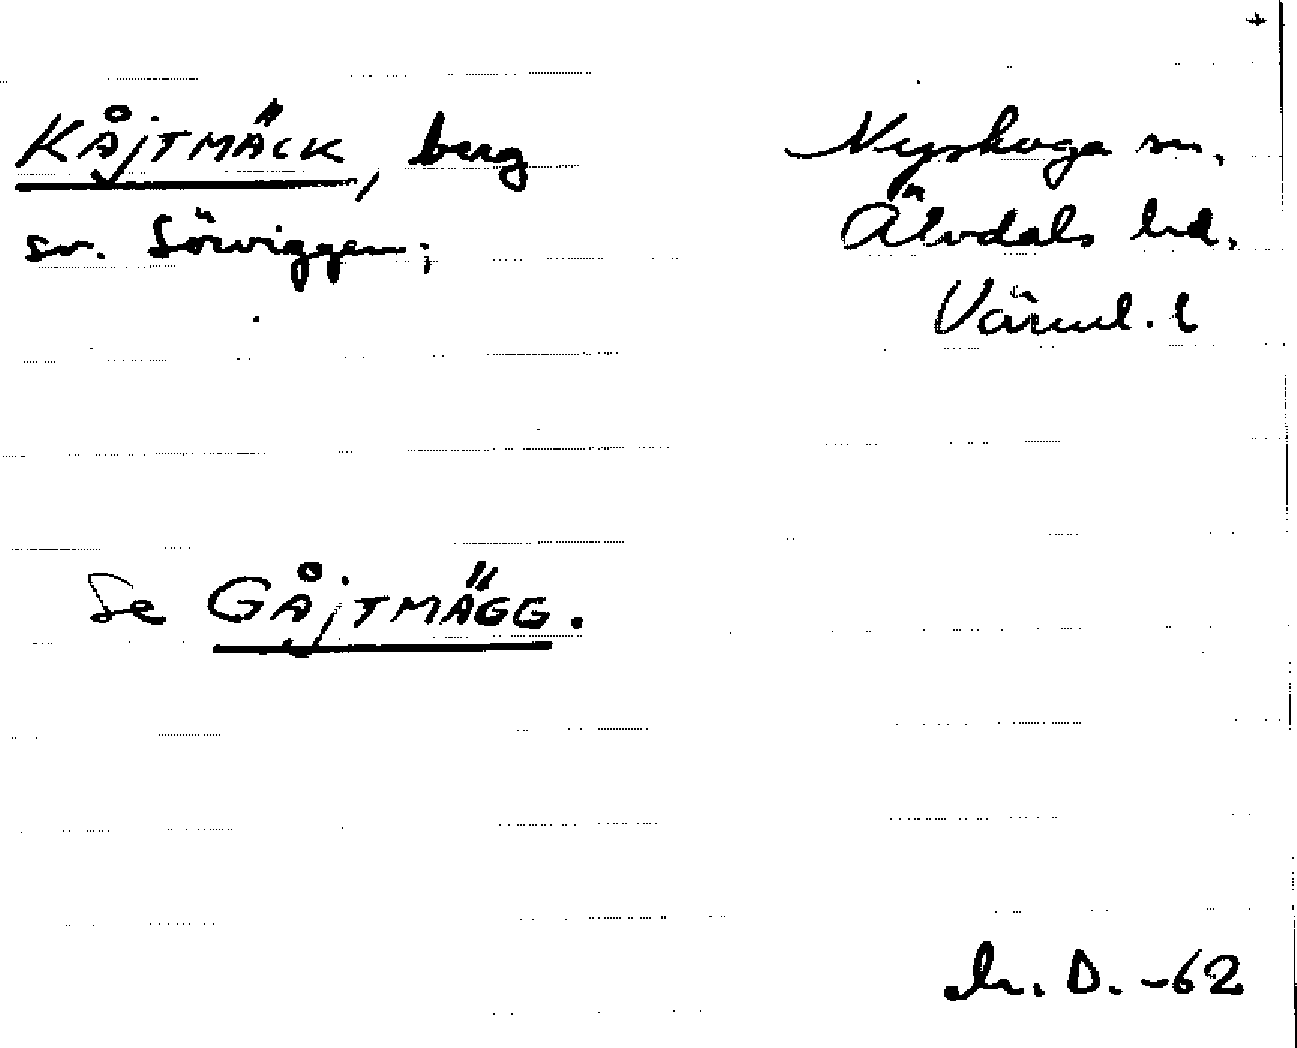 KÅJTMÄCK, berg
sv. Sörviggen;
Nyskoga sn,
Älvdals hd,
Värml. l
Se GÅJTMÄGG.
D. -62